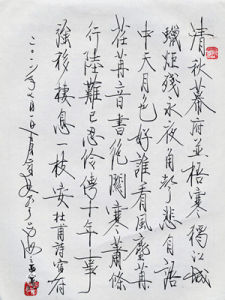 清秋幕府井梧寒獨江城
蠟炬殘永夜角聲悲自語
中天月色好誰看風塵
荏苒音書絕關塞蕭條
行路難已忍伶俜十年事
強移棲息一枝安杜甫詩宿府